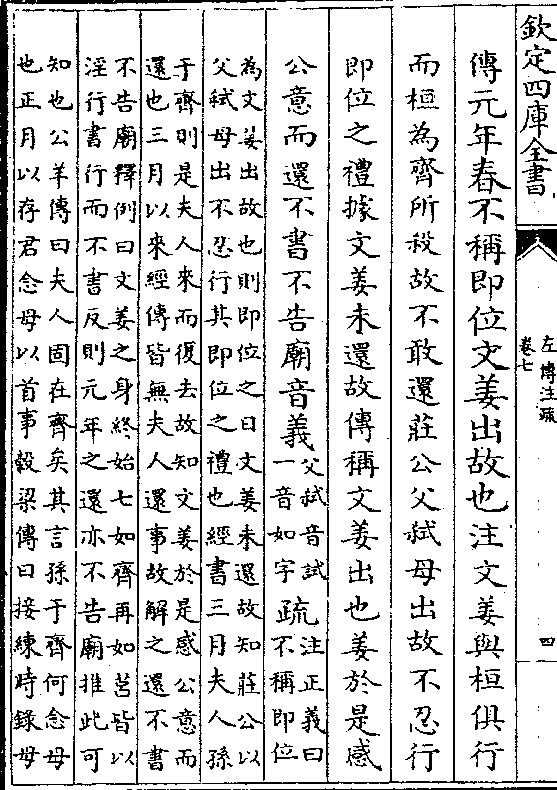 欽定四庫全書
左傳注疏
卷七
四
傳元年春不稱即位文姜出故也注文姜與桓俱行
而桓為齊所殺故不敢還莊公父弑母出故不忍行
即位之禮據文姜未還故傳稱文姜出也姜於是感
公意而還不書不告廟音義父弑音試
一音如字疏注正義曰
不稱即位
為文姜出故也則即位之日文姜未還故知莊公以
父弑母出不忍行其即位之禮也經書三月夫人孫
于齊則是夫人來而復去故知文姜於是感公意而
還也三月以來經傳皆無夫人還事故解之還不書
不告廟釋例曰文姜之身終始七如齊再如莒皆以
淫行書行而不書反則元年之還亦不告廟推此可
知也公羊傳曰夫人固在齊矣其言孫于齊何念母
也正月以存君念母以首事榖梁傳曰接練時錄母